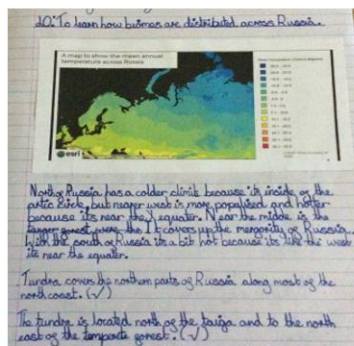 LO: To learn how biomes are distributed across Russia.
A map to show the mean annual
temperature across Russia
esri
North of Russia has a colder climit because its inside of the
artic Circle, but nearer west is more populised and hotter
because its near the equater. Near the middle is the
forest, were the It covers up the mergority of Russia.
With the south of Russia its a bit hot because its like the west
its near the equater.
Tundra covers the northern parts of Russia along most of the
north coast. (✓)
The tundra is located north of the taiga and to the north
east of the temparte forest. (✓)